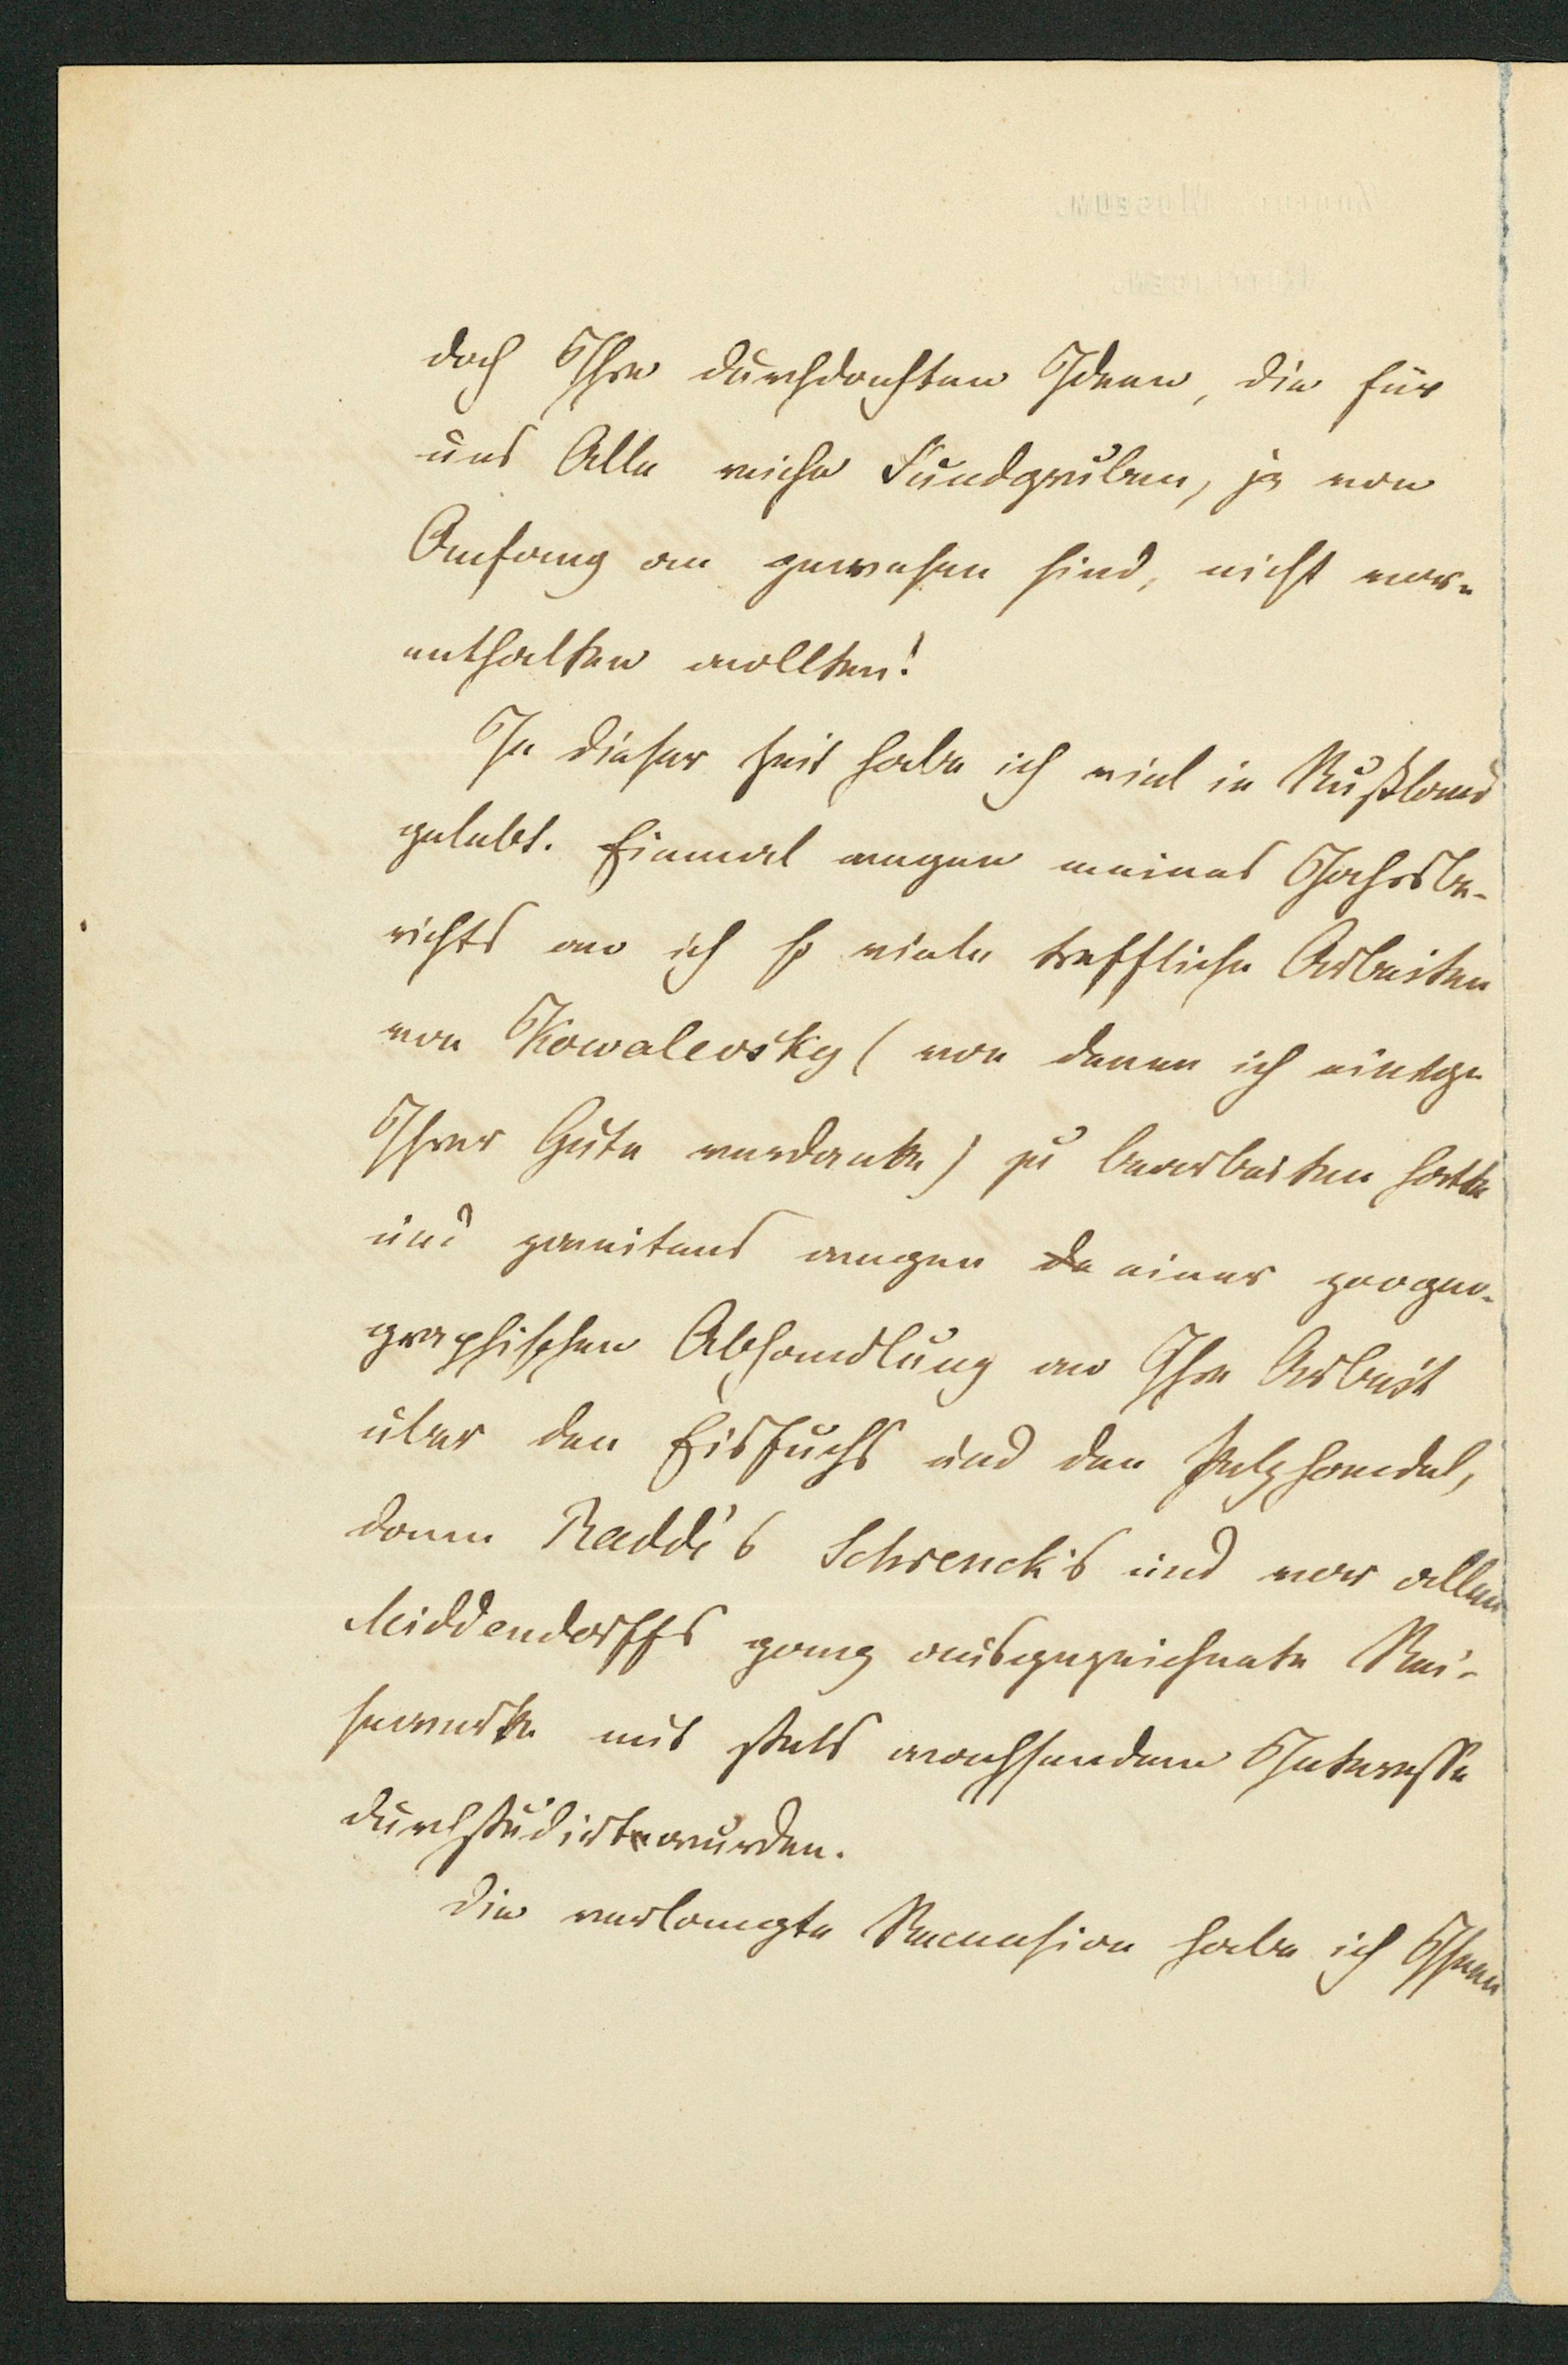 doch Ihre durchdachten Ideen, die für
uns Alle reiche Fundgruben, ja von
Anfang an gewesen sind, nicht vor-
enthalten wollten!
In dieser Zeit habe ich viel in Rußland
gelebt. Einmal wegen meines Jahresbe-
richts wo ich so viele treffliche Arbeiten
von Kowalevsky (von denen ich einige
Ihrer Güte verdanke) zu bearbeiten hatte
und zweitens wegen de einer zoogeo-
graphischen Abhandlung wo Ihre Arbeit
über den Eisfuchs und den Pelzhandel,
dann Radde's Schrenck's und vor allem
Middendorffs ganz ausgezeichnete Rei-
sewerke mit stets wachsendem Interesse
durchstudirt wurden.
Die verlangte Recension habe ich Ihnen